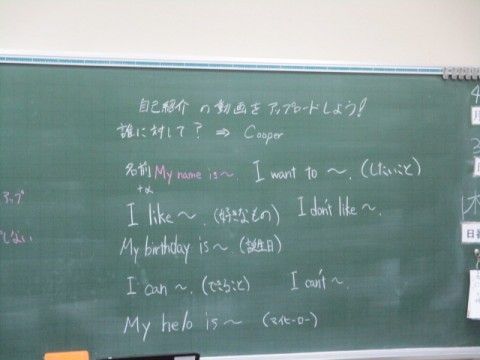 自己紹介の動画をアップロードしよう!
誰に対して? ⇒ Cooper
名前 My name is ~. I want to ~. (したいこと)
+α
I like ~. (好きなもの) I don't like ~.
My birthday is ~ (誕生日)
I can ~. (できること) I can't ~.
My helo is ~ (マイヒーロー)
アップ
しない
木
日